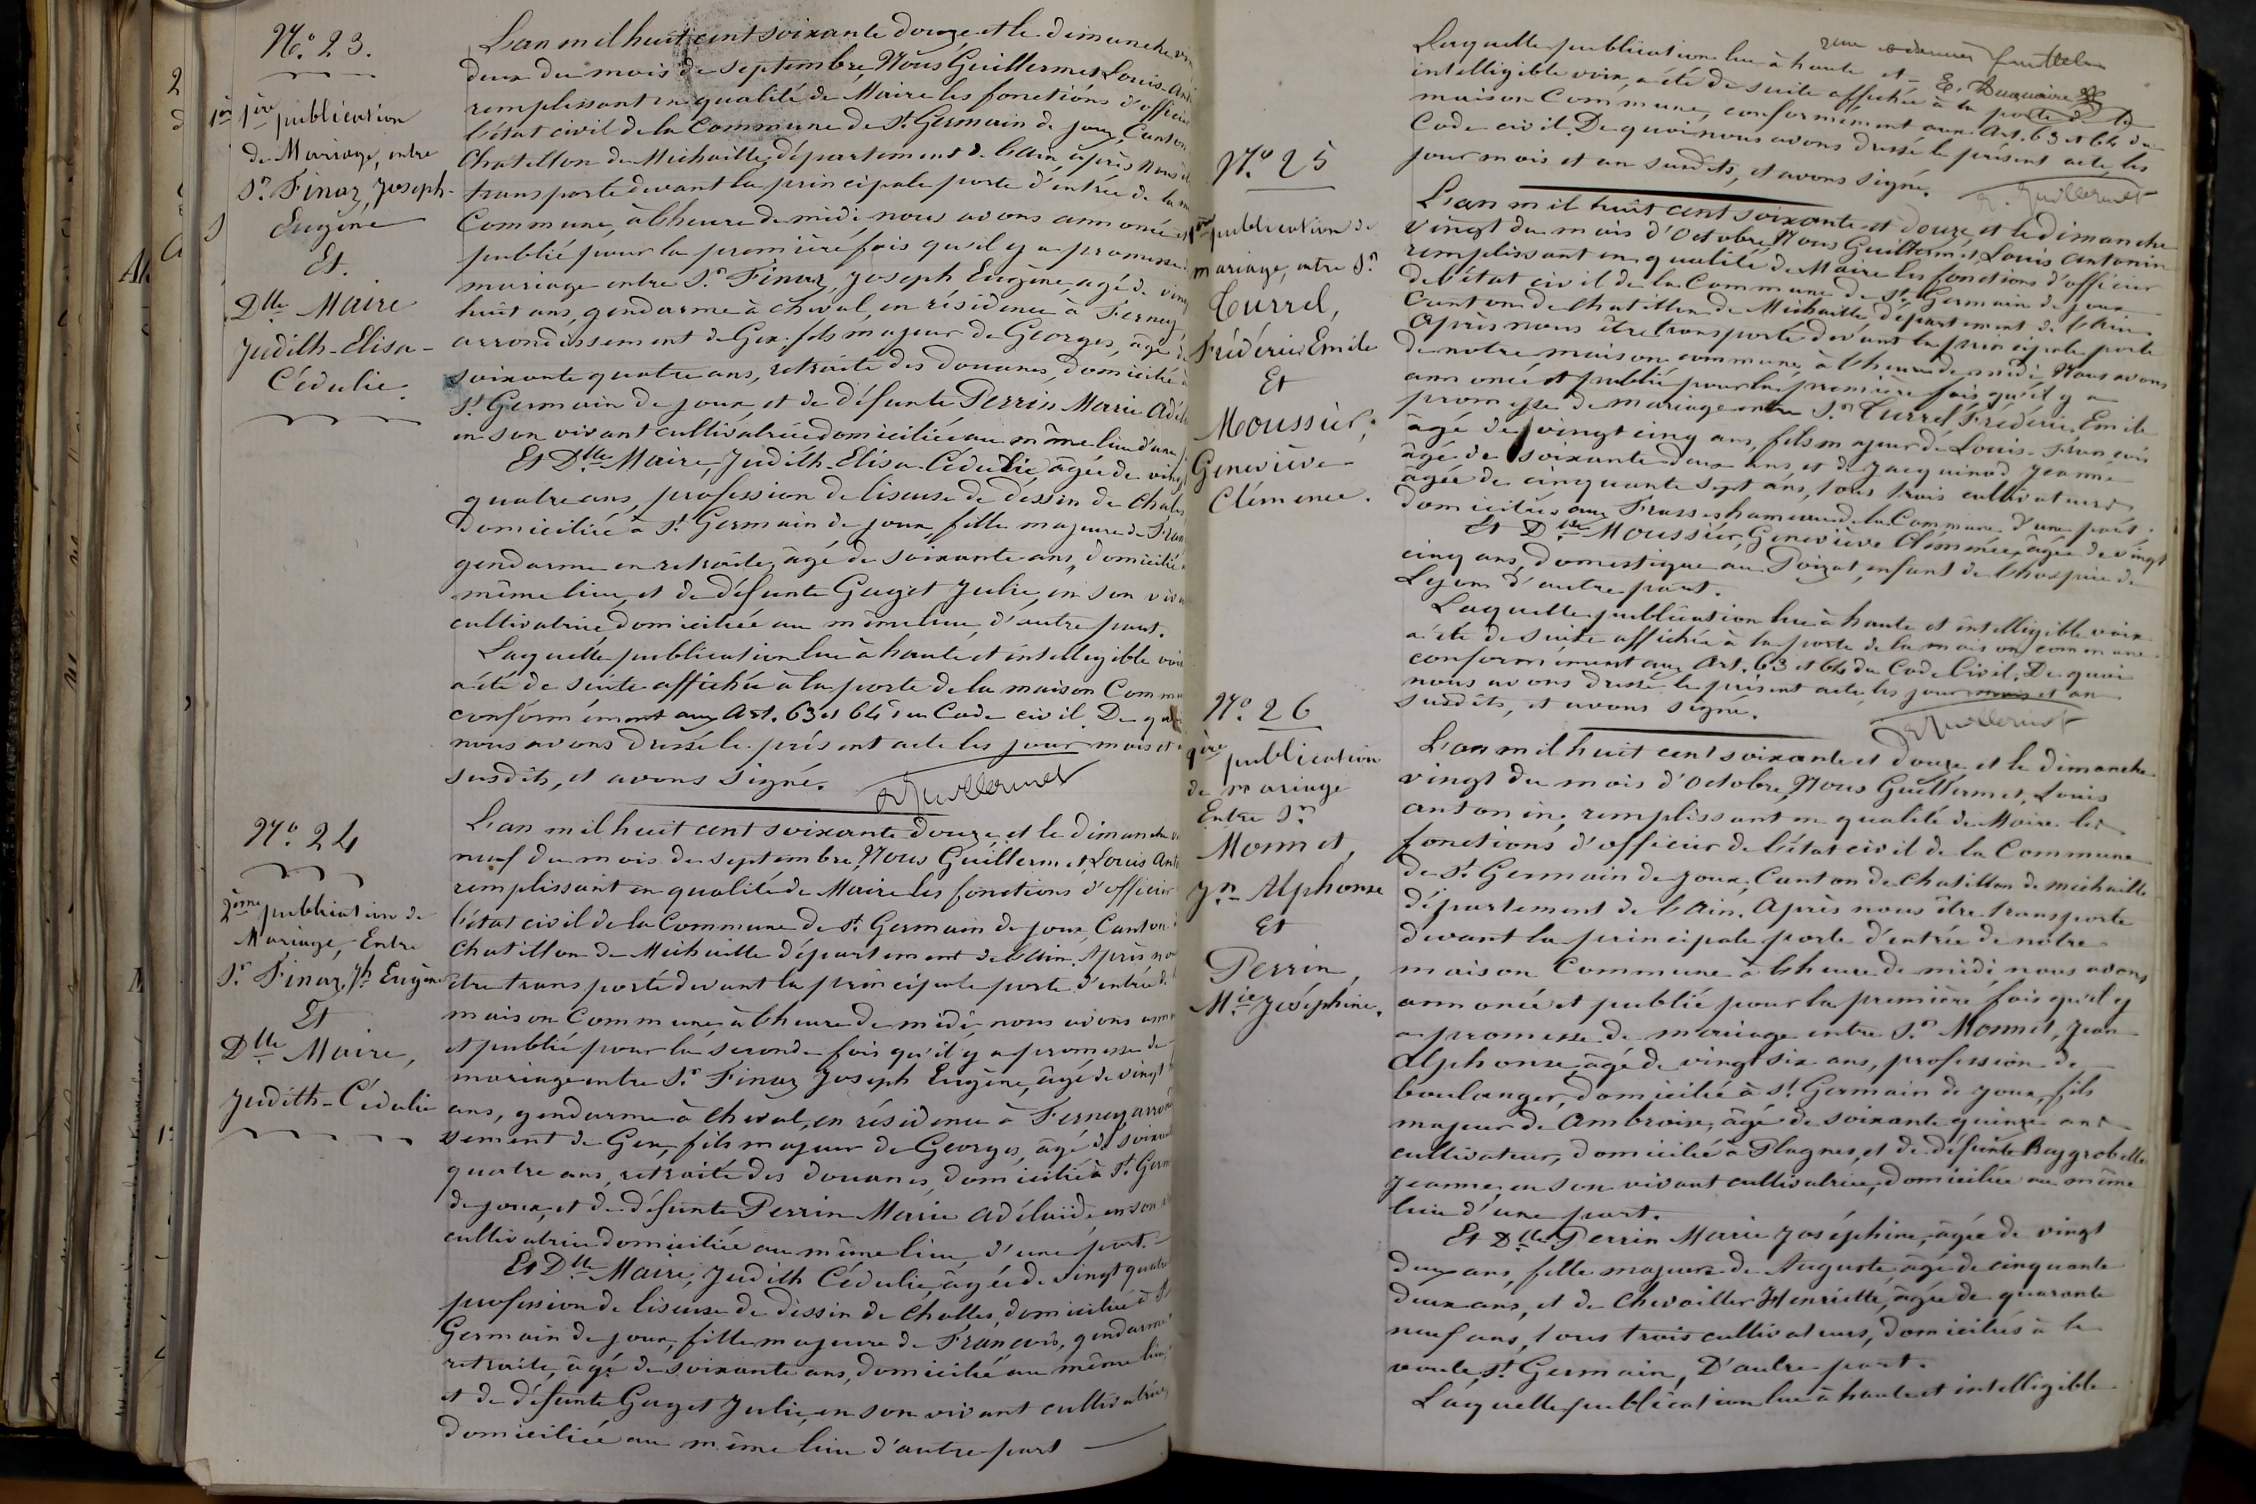 N.° 23.
1ère publication
de Mariage, entre
Sr. Finaz, Joseph-
Eugène
Et.
Dlle Maire
Judith-Elisa-
Cédulie.
L'an mil huit cent soixante douze et le dimanche
deux du mois de septembre, Nous Guillermet Louis-
remplissant en qualité de Maire les fonctions d'officier
l'état civil de la Commune de St. Germain de joux, Canton
Chatillon de Michaille, département de l'ain, après nous
transporté devant la principale porte d'entrée de la
Commune, à l'heure de midi nous avons annoncé et
publié pour la première fois qu'il y a promesse
mariage entre Sr. Finaz, Joseph Eugène, agé de
huit ans, gendarme à cheval, en résidence à Ferney
arrondissement de Gex, fils majeur de Georges, âgé de
soixante quatre ans, retraité des douanes, domicilié à
St. Germain de joux, et de défunte Perrin Marie
en son vivant cultivatrice domiciliée au même lieu d'une
Et Dlle Maire, Judith-Elisa-Cédulie, âgée de
quatre ans, profession de liseuse de dessin de
domiciliée à St. Germain de joux, fille majeure de
gendarme en retraite, âgé de soixante ans, domicilié
même lieu, et de défunte Guyet Julie, en son
cultivatrice, domiciliée au même lieu, d'autre part.
Laquelle publication lue à haute et intelligible voix
a été de suite affichée à la porte de la maison
conformément aux art. 63 et 64 du Code civil. De
nous avons dressé le présent acte les jour mois et
susdits, et avons signé. Guillermet
N.° 24
2ème publication de
Mariage, Entre
Sr. Finaz, Jh Eugène
Et
Dlle Maire,
Judith-Cédulie
L'an mil huit cent soixante douze, et le dimanche
neuf du mois de septembre, Nous Guillermet, Louis
remplissant en qualité de Maire les fonctions d'officier
l'état civil de la Commune de St. Germain de joux, Canton
Chatillon de Michaille département de l'ain. Après
être transporté devant la principale porte d'entrée
maison Commune, à l'heure de midi, nous avons
et publié pour la seconde fois qu'il y a promesse de
mariage entre Sr. Finaz Joseph Eugène, âgé de vingt
ans, gendarme à cheval, en résidence à Ferney
sement de Gex, fils majeur de Georges, âgé de
quatre ans, retraité des douanes, domicilié à St.
de joux, et de défunte Perrin Marie adélaide, en son
cultivatrice domiciliée au même lieu, d'une part.
Et Dlle Maire, Judith Cédulie, âgée de vingt quatre
profession de liseuse de dessin de Challes, domiciliée à
Germain de joux, fille majeure de Francois, gendarme
retraite, âgé de soixante ans, domicilié au même lieu,
et de défunte Guyet Julie, en son vivant cultivatrice
domiciliée au même lieu d'autre part
Laquelle publication lue à haute et
intelligible voix, a été de suite affichée à la porte de la
maison Commune, conformément aux Art. 63 et 64 du
Code civil. De quoi nous avons dressé le présent acte, les
jour mois et an susdits, et avons signé.
Guillermet
N.° 25
1ère publication de
mariage, entre Sr.
Turrel,
Frédéric Emile
Et
Moussier,
Geneviève
Clémence.
L'an mil huit cent soixante et douze, et le dimanche
vingt du mois d'Octobre, Nous Guillermet, Louis antonin
remplissant en qualité de Maire les fonctions d'officier
de l'état civil de la Commune de St. Germain de joux
Canton de Chatillon de Michaille, département de l'Ain.
Après nous être transporté devant la principale porte
de notre maison commune, à l'heure de midi, Nous avons
annoncé et publié pour la première fois qu'il y a
promesse de mariage entre Sr. Turrel Frédéric, Emile
âgé de vingt cinq ans, fils majeur de Louis-François
âgé de soixante deux ans, et de Jacquinod Jeanne
âgée de cinquante sept ans, tous trois cultivateurs
domiciliés aux Frasses hameau de la Commune, d'une part.
Et Dlle Moussier, Geneviève Clémence, âgée de vingt
cinq ans, domestique au Poizat, enfant de l'hospice de
Lyon d'autre part.
Laquelle publication lue à haute et intelligible voix
a été de suite affichée à la porte de la maison commune
conformément aux Art. 63 et 64 du Code Civil. De quoi
nous avons dressé le présent acte, les jour mois et an
susdits, et avons signé.
Guillermet
N.° 26
1ère publication
de mariage
Entre Sr.
Monnet,
Jn Alphonse
Et
Perrin,
Mie Joséphine.
L'an mil huit cent soixante et douze, et le dimanche
vingt du mois d'Octobre, Nous Guillermet, Louis
antonin, remplissant en qualité de Maire les
fonctions d'officier de l'état civil de la Commune
de St. Germain de joux, Canton de Chatillon de michaille
département de l'Ain. Après nous être transporté
devant la principale porte d'entrée de notre
maison Commune à l'heure de midi nous avons
annoncé et publié pour la première fois qu'il y
a promesse de mariage entre Sr. Monnet, Jean
Alphonse, âgé de vingt six ans, profession de
boulanger, domicilié à St. Germain de joux, fils
majeur de Ambroise, âgé de soixante quinze ans
cultivateur, domicilié à Plagnes, et de défunte
Jeanne, en son vivant cultivatrice, domiciliée au même
lieu d'une part.
Et Dlle Perrin Marie Joséphine, âgée de vingt
deux ans, fille majeure de Auguste âgé de cinquante
deux ans, et de Chevailler Henriette, âgée de quarante
neuf ans, tous trois cultivateurs, domiciliés à la
voute, St. Germain, D'autre part.
Laquelle publication lue à haute et intelligible